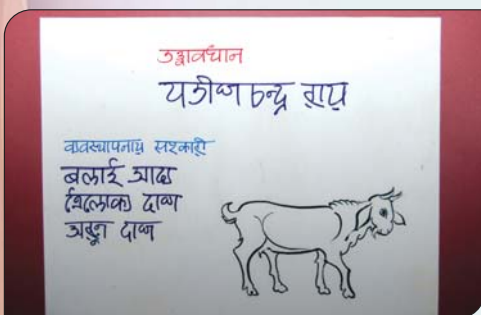 তত্ত্বাবধান
যতীশ চন্দ্র রায়
ব্যবস্থাপনায় সহকারী
বলাই আঢ্য
ত্রৈলোক্য দাস
দাস